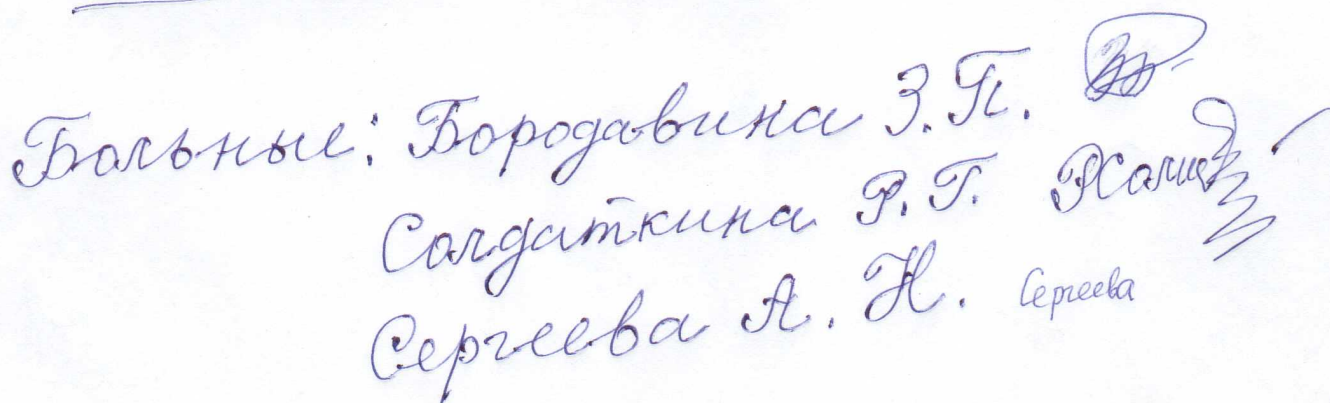 Больные: Бородавина З.П.
Солдаткина Р.Г.
Сергеева А.Н. Сергеева